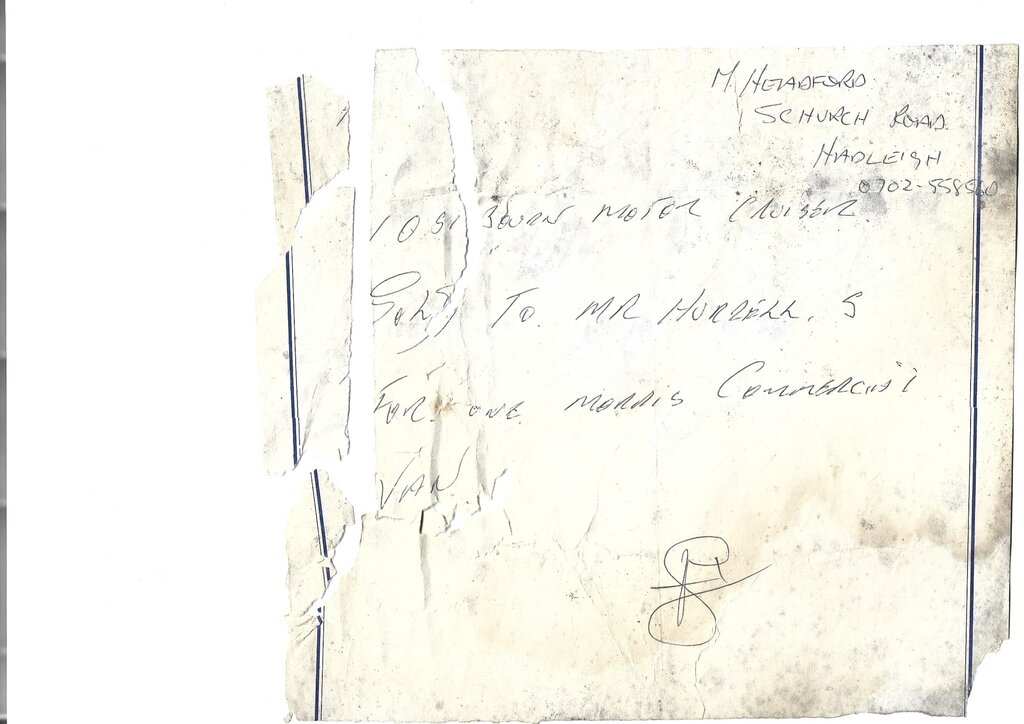 M. HEADFORD
5 CHURCH ROAD
HADLEIGH
0702-558560
BOURN MOTOR CRUISER
SOLD TO. MR HURRELL. S
FOR. ONE MORRIS COMMERCIAL
VAN